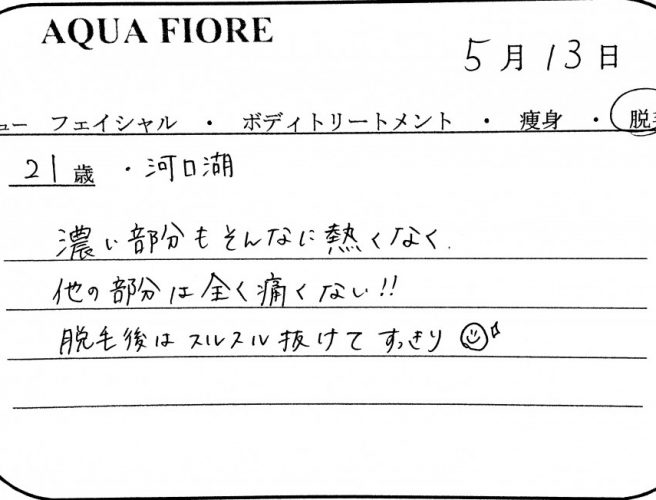 AQUA FIORE
5月13日
ュー フェイシャル ・ ボディトリートメント ・ 痩身 ・ 脱毛
21歳 ・河口湖
濃い部分もそんなに熱くなく.
他の部分は全く痛くない!!
脱毛後はスルスル抜けてすっきり